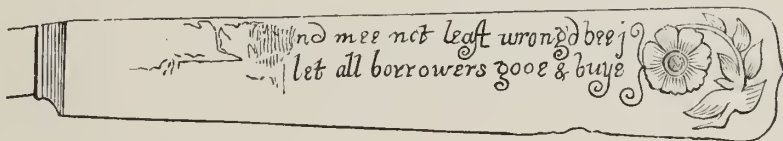 nd mee not least wrong'd bee j
let all borrowers gooe & buye